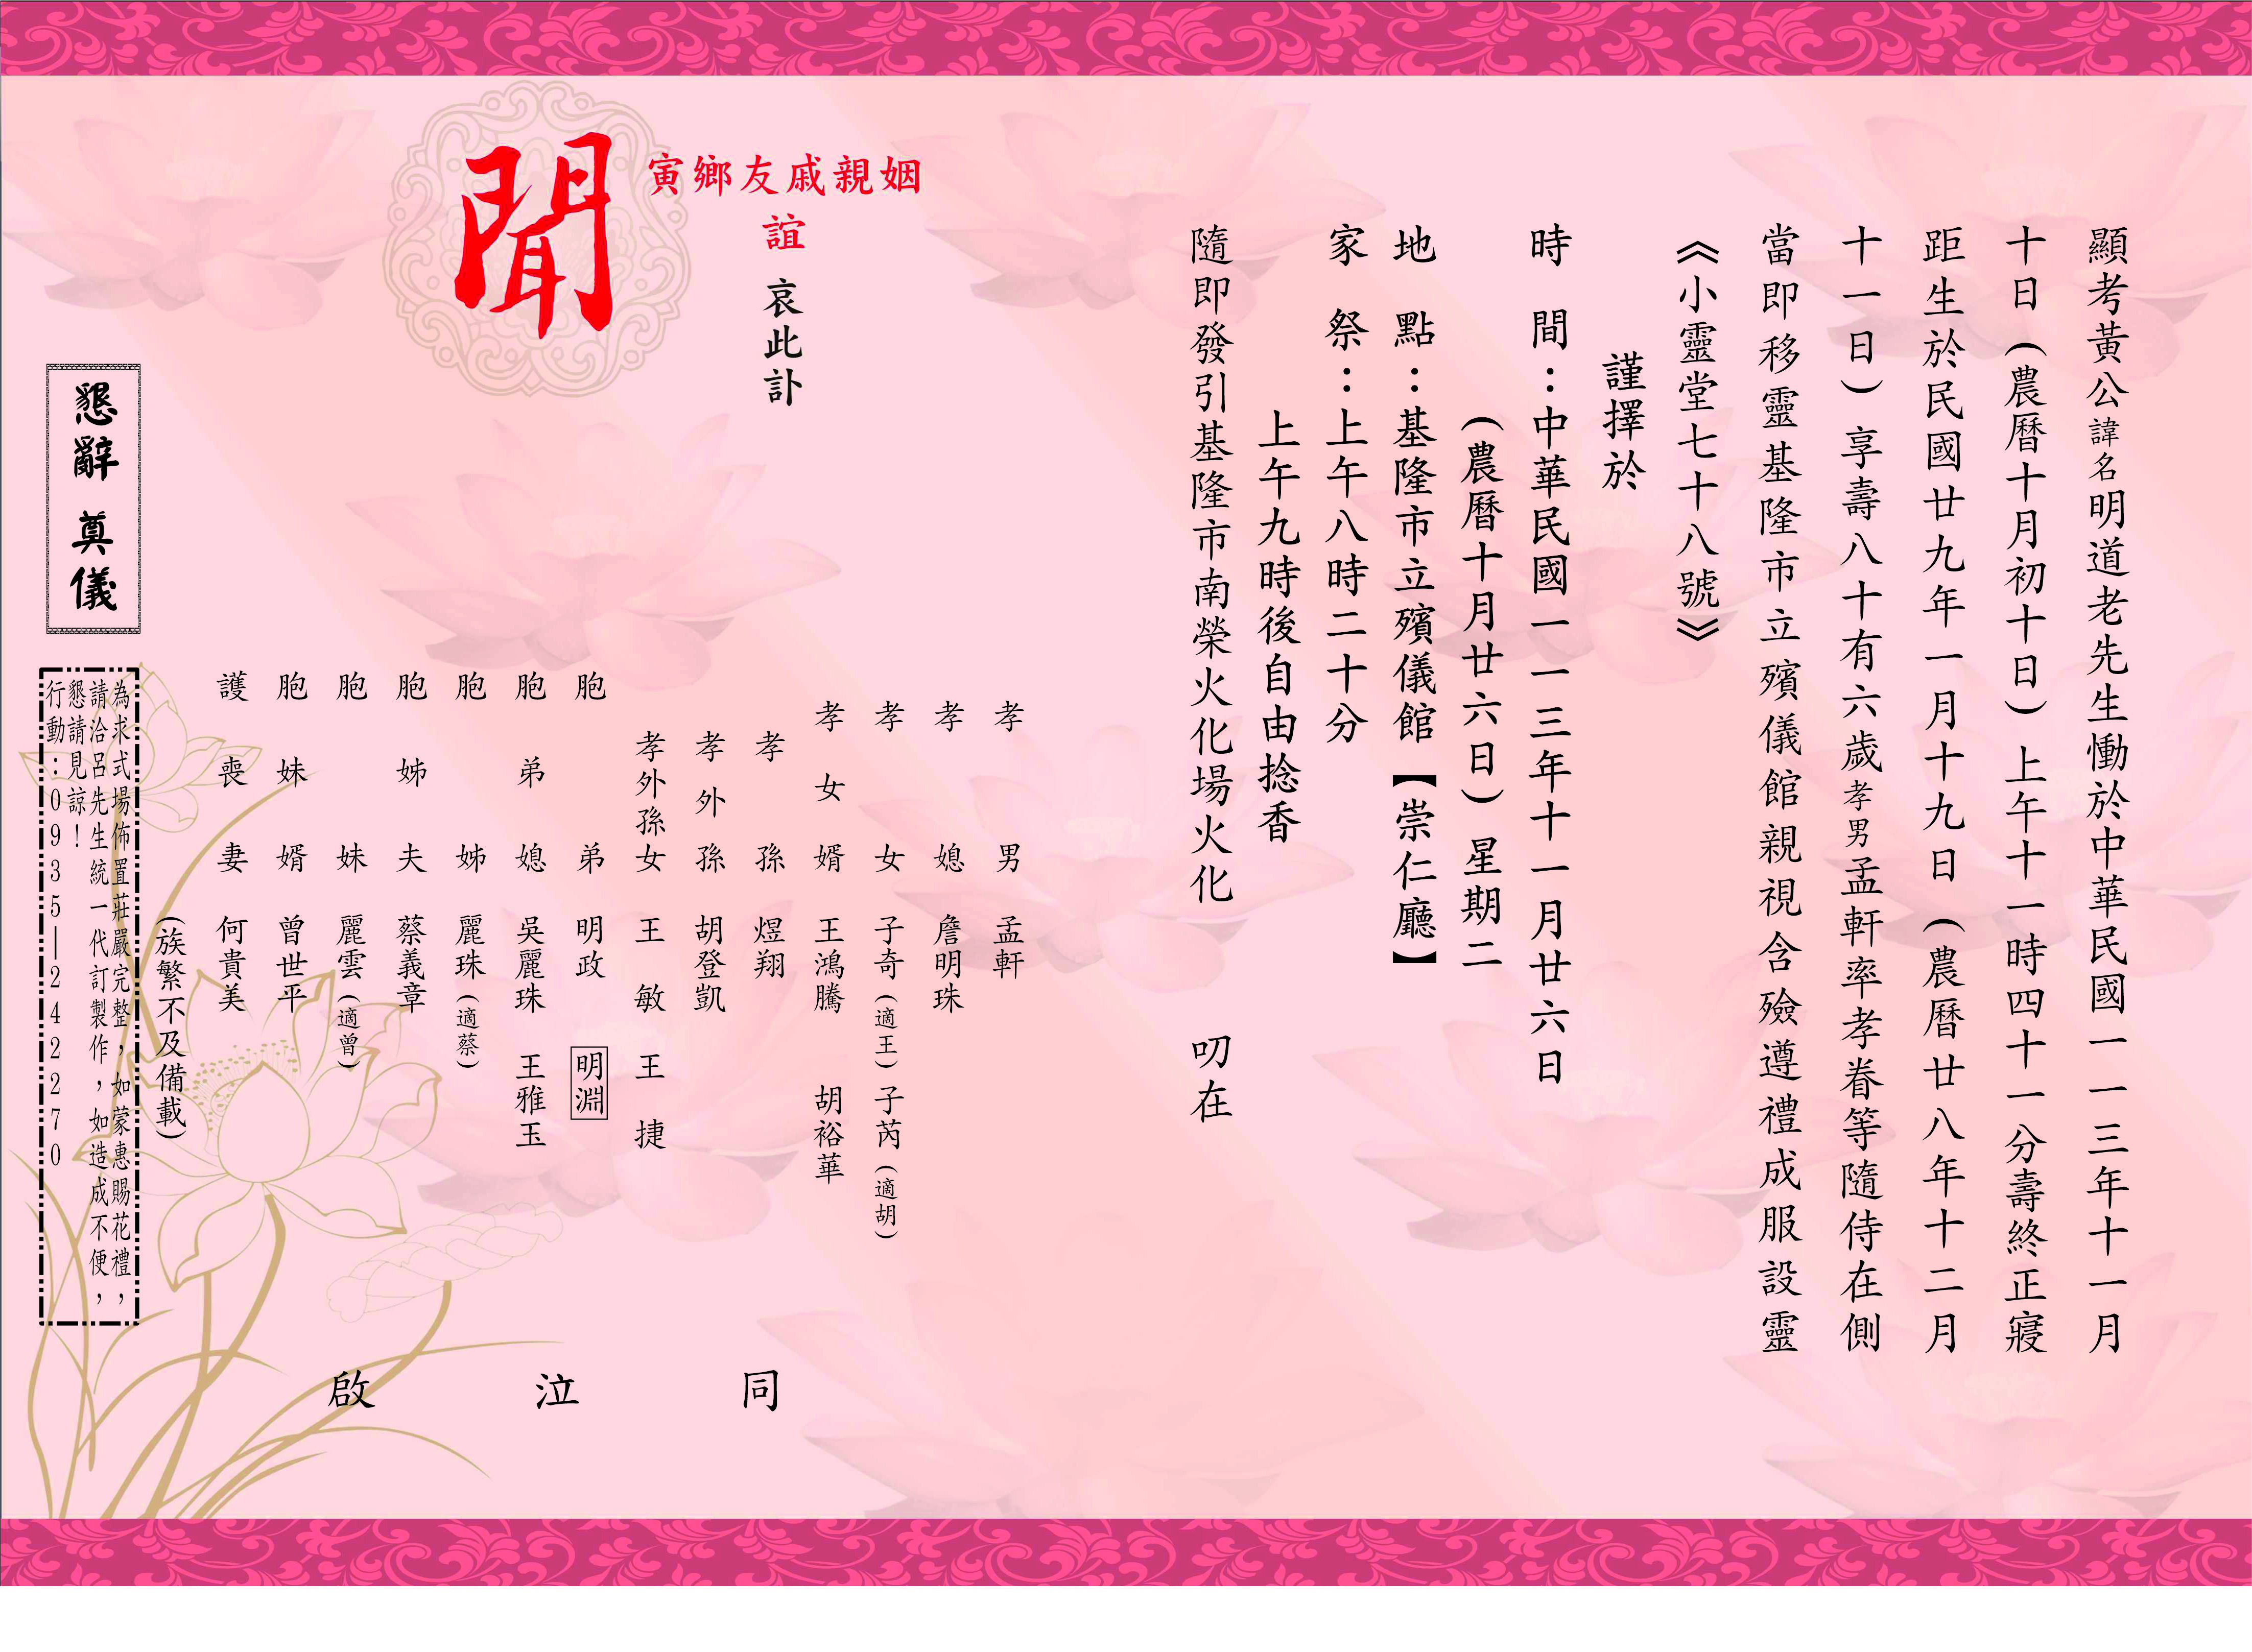 顯考黃公諱名明道老先生慟於中華民國一一三年十一月
十日(農曆十月初十日)上午十一時四十一分壽終正寢
距生於民國廿九年一月十九日(農曆廿八年十二月
十一日)享壽八十有六歲孝男孟軒率孝眷等隨侍在側
當即移靈基隆市立殯儀館親視含殮遵禮成服設靈
《小靈堂七十八號》
謹擇於
時間：中華民國一一三年十一月廿六日
(農曆十月廿六日)星期二
地點：基隆市立殯儀館【崇仁廳】
家祭：上午八時二十分
上午九時後自由捻香
隨即發引基隆市南榮火化場火化 叨在
寅鄉友戚親姻
誼 哀此訃
聞
孝男 孟軒
孝媳 詹明珠
孝女 子奇(適王)子芮(適胡)
孝女婿 王鴻騰 胡裕華
孝孫 煜翔
孝外孫 胡登凱
孝外孫女 王敏 王捷
胞弟 明政 明淵
胞弟媳 吳麗珠 王雅玉
胞姊 麗珠(適蔡)
胞姊夫 蔡義章
胞妹 麗雲(適曾)
胞妹婿 曾世平
護喪妻 何貴美
(族繁不及備載)
啟泣同
懇辭 奠儀
為求式場佈置莊嚴完整，如蒙惠賜花禮，
請洽呂先生統一代訂製作，如造成不便，
懇請見諒！
行動：0935—242270